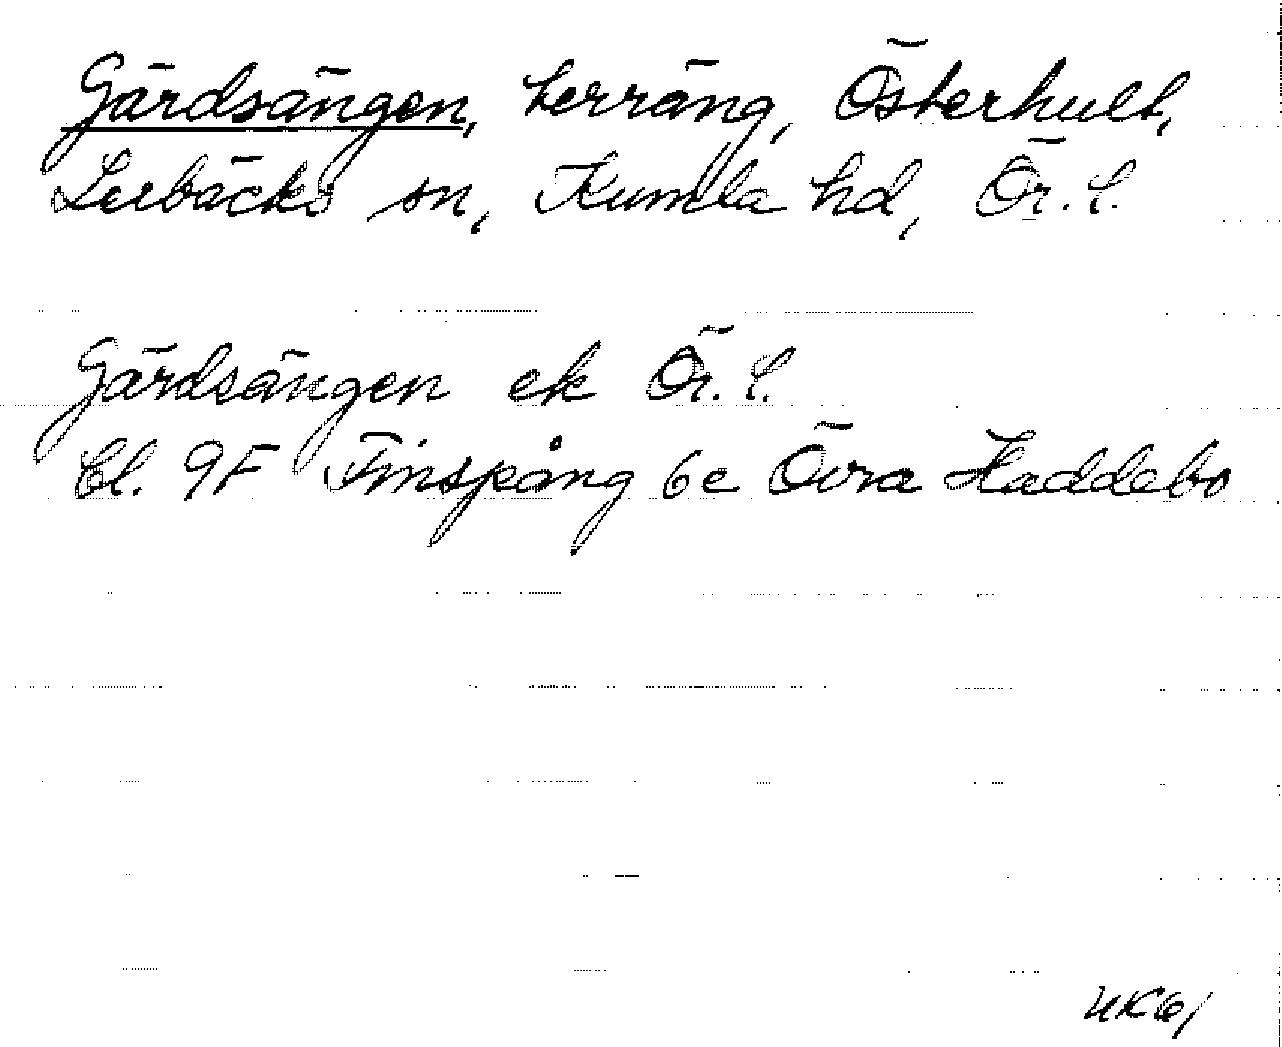 Gärdsängen, terräng, Österhult,
Lerbäcks sn, Kumla hd, Ör. l.
Gärdsängen ek Ör. l.
Bl. 9F Finspång 6e Övra Haddebo
UK61